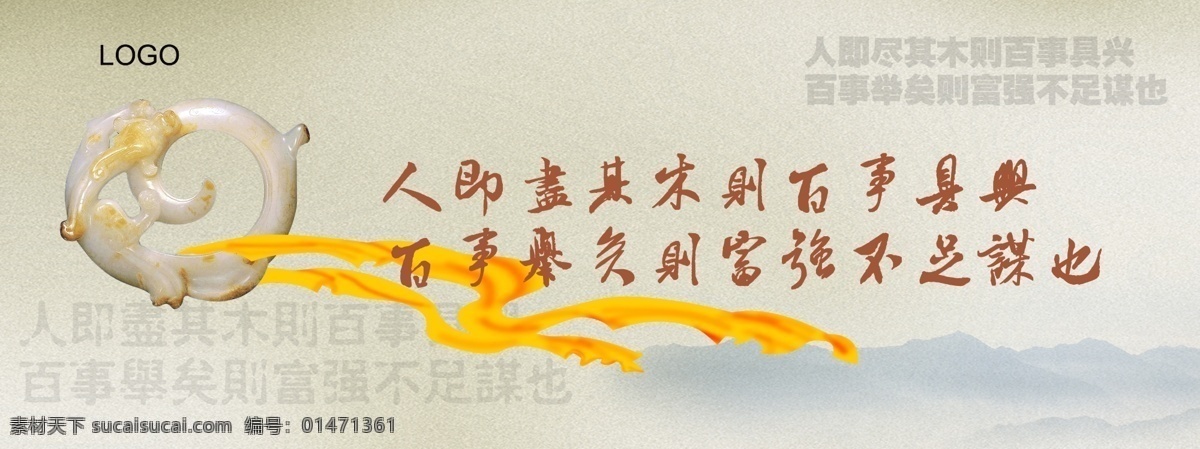 LOGO
人即尽其木则百事具兴
百事举矣则富强不足谋也
人即盡其木則百事具興
百事舉矣則富強不足謀也
人即盡其木則百事具興
百事舉矣則富强不足謀也
素材天下 sucaisucai.com 编号：01471361